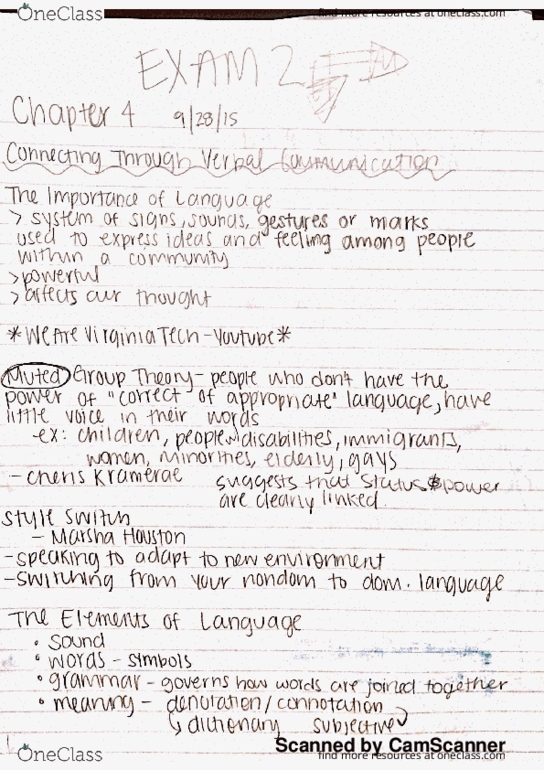 OneClass
find more resources at oneclass.com
EXAM 2
Chapter 4 9/28/15
Connecting Through Verbal Communication
The Importance of Language
> system of signs, sounds, gestures or marks
used to express ideas and feeling among people
within a community
> powerful
> affects our thought
*We Are Virginia Tech - Youtube*
Muted Group Theory - people who don't have the
power of "correct of appropriate" language, have
little voice in their words
ex: children, people w/ disabilities, immigrants,
women, minorities, elderly, gays
- Cheris Kramerae suggests that status & power
are clearly linked
Style Switch
- Marsha Houston
- speaking to adapt to new environment
- switching from your nondom to dom. language
The Elements of Language
• Sound
• words - simbols
• grammar - governs how words are joined together
• meaning - denotation / connotation
↳ dictionary subjective
Scanned by CamScanner
OneClass
find more resources at oneclass.com